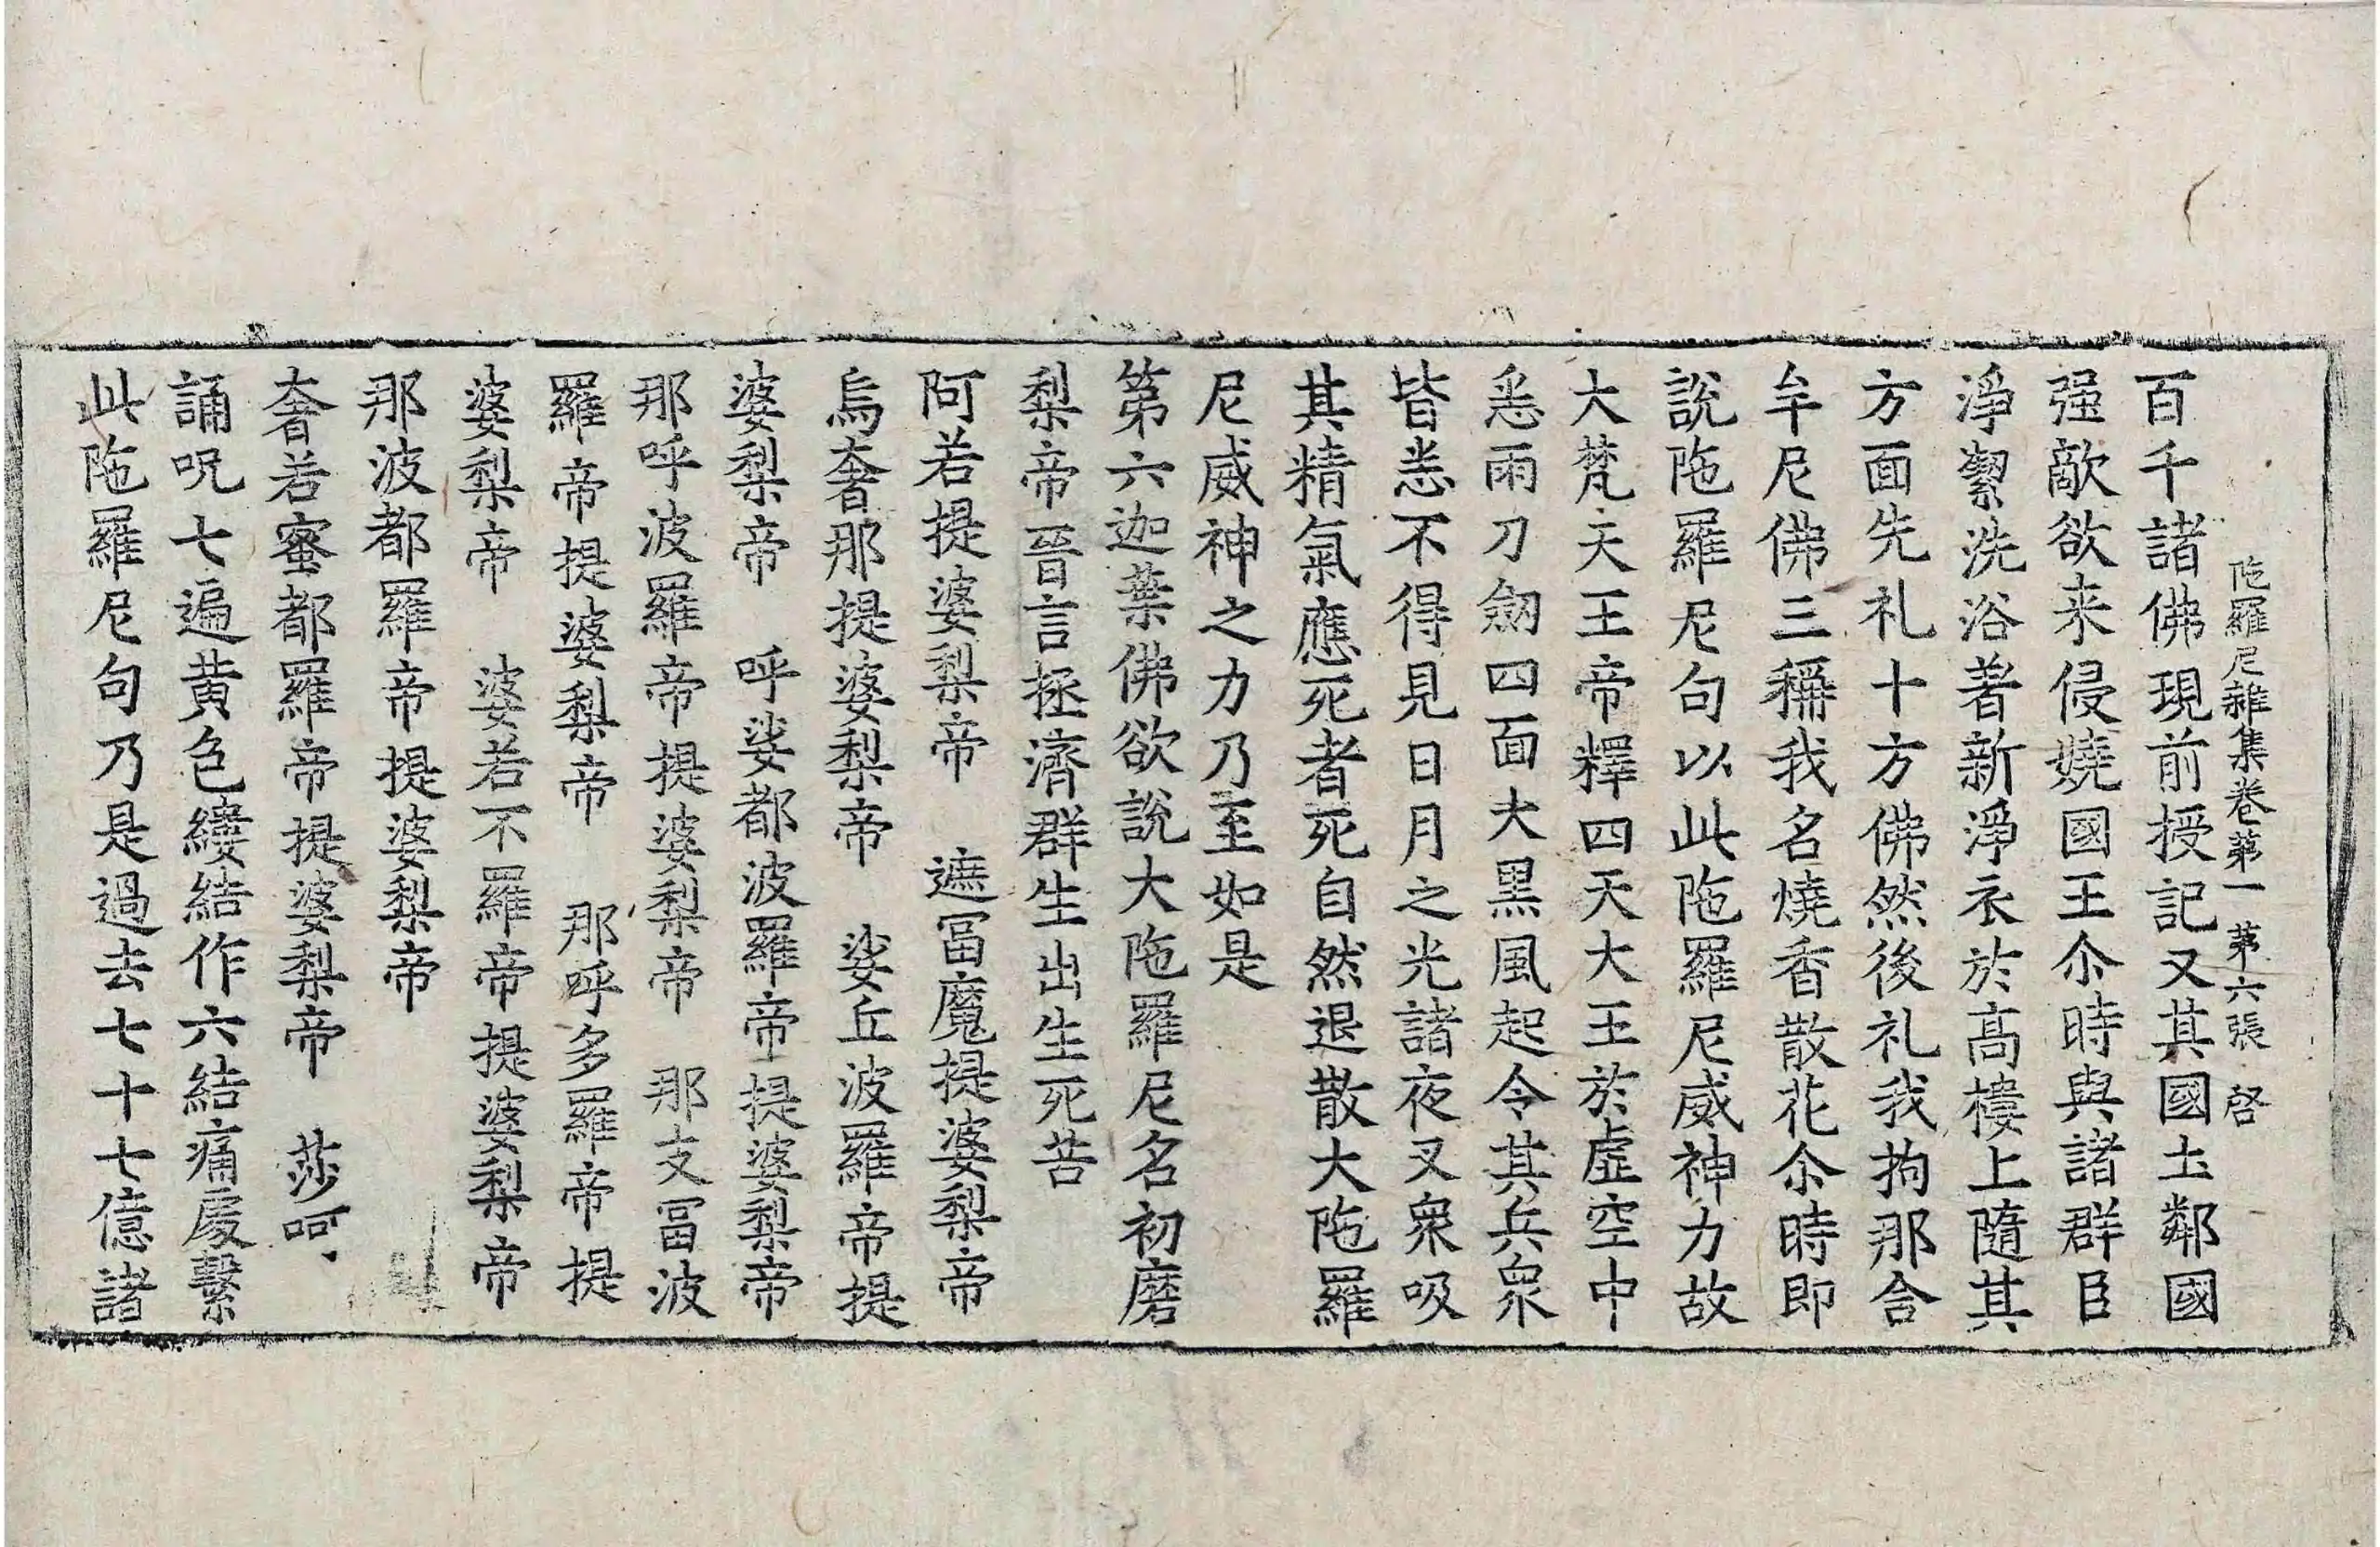 陁羅尼雜集卷第一 第六張 啓
百千諸佛現前授記又其國土鄰國
强敵欲来侵嬈國王尒時與諸群臣
淨㓗洗浴著新淨衣於髙樓上隨其
方面先礼十方佛然後礼我拘那含
牟尼佛三稱我名燒香散花尒時即
說陁羅尼句以此陁羅尼威神力故
大梵天王帝釋四天大王於虛空中
悉雨刀劒四面大黒風起令其兵衆
皆悉不得見日月之光諸夜叉衆吸
其精氣應死者死自然退散大陁羅
尼威神之力乃至如是
第六迦葉佛欲說大陁羅尼名初磨
梨帝晉言拯濟群生出生死苦
阿若提婆梨帝 遮冨魔提婆梨帝
烏奢那提婆梨帝 娑丘波羅帝提
婆梨帝 呼娑都波羅帝提婆梨帝
那呼波羅帝提婆梨帝 那支冨波
羅帝提婆梨帝 那呼多羅帝提
婆梨帝 婆若不羅帝提婆梨帝
那波都羅帝提婆梨帝
奢若蜜都羅帝提婆梨帝 莎呵
誦呪七遍黄色縷結作六結痛處繫
此陁羅尼句乃是過去七十七億諸